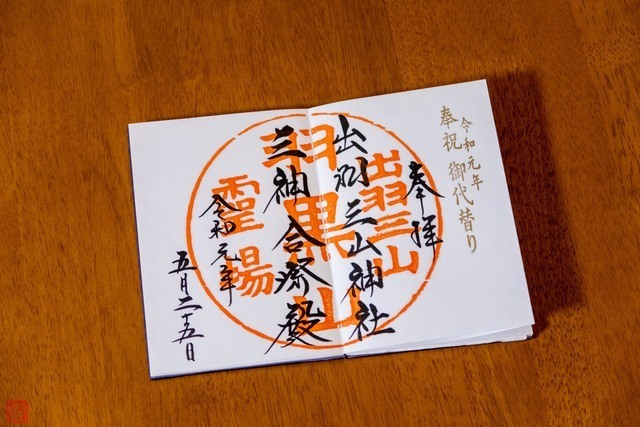 令和元年
奉祝 御代替り
奉拝
出羽三山神社
三神合祭殿
令和元年
五月二十五日
出羽三山
羽黒山
霊場